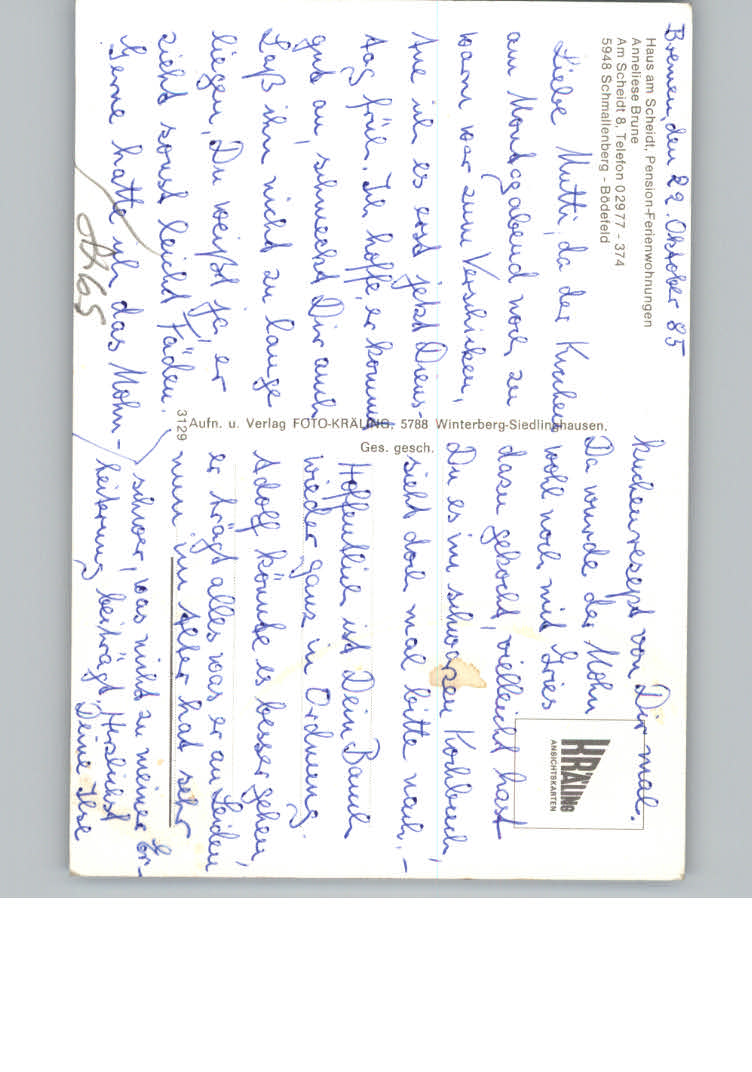 Bremen, den 22. Oktober 85
Haus am Scheidt, Pension-Ferienwohnungen
Anneliese Brune
Am Scheidt 8, Telefon 0 29 77 - 374
5948 Schmallenberg - Bödefeld
Liebe Mutti, da der Kuchen
am Montagabend noch zu
warm war zum Verschicken,
tue ich es erst jetzt Diens-
tag früh. Ich hoffe, er kommt
gut an, schmeckt Dir auch.
Laß ihn nicht zu lange
liegen, Du weißt ja, er
zieht sonst leicht Fäden.
Gerne hätte ich das Mohn-
kuchenrezept von Dir mal.
Da wurde der Mohn
wohl noch mit Gries
dazu gekocht, vielleicht hast
Du es im schwarzen Kochbuch,
sieht doch mal bitte nach. –
Hoffentlich ist Dein Bauch
wieder ganz in Ordnung.
Adolf könnte es besser gehen,
er trägt alles was er an Leiden
nun im Alter hat sehr
schwer, was nicht zu meiner Er-
heiterung beiträgt. Herzlichst
Deine Ilse
3129
Aufn. u. Verlag FOTO-KRÄLING, 5788 Winterberg-Siedlinghausen.
Ges. gesch.
KRÄLING
ANSICHTSKARTEN